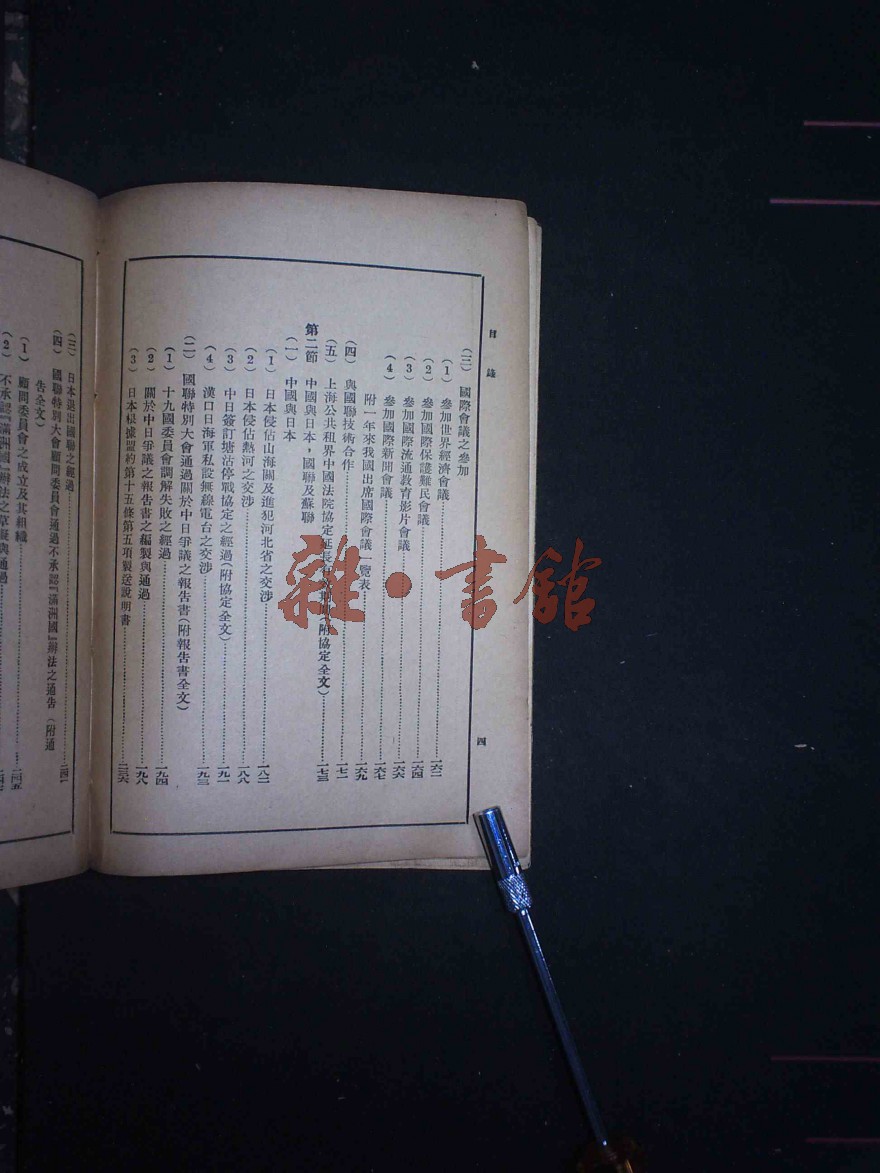 目錄
四
(三) 國際會議之參加
(1) 參加世界經濟會議……一六二
(2) 參加國際保護難民會議……一六四
(3) 參加國際流通教育影片會議……一六六
(4) 參加國際新聞會議……一六七
附一年來我國出席國際會議一覽表……一六九
(四) 與國聯技術合作……一七一
(五) 上海公共租界中國法院協定延長 (附協定全文)……一七三
第二節 中國與日本，國聯及蘇聯
(一) 中國與日本
(1) 日本侵佔山海關及進犯河北省之交涉……一八二
(2) 日本侵佔熱河之交涉……一八八
(3) 中日簽訂塘沽停戰協定之經過(附協定全文)……一九一
(4) 漢口日海軍私設無線電台之交涉……一九三
(二) 國聯特別大會通過關於中日爭議之報告書(附報告書全文)
(1) 十九國委員會調解失敗之經過……一九四
(2) 關於中日爭議之報告書之編製與通過……一九八
(3) 日本根據盟約第十五條第五項製送說明書……二三六
(三) 日本退出國聯之經過……二四一
(四) 國聯特別大會顧問委員會通過不承認『滿洲國』辦法之通告(附通
告全文)
(1) 顧問委員會之成立及其組織……二四五
(2) 不承認『滿洲國』辦法之草擬與通過
雜·書館